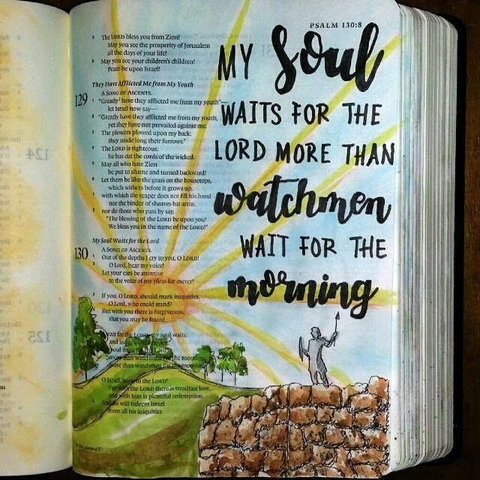 PSALM 130:8
The LORD bless you from Zion!
May you see the prosperity of Jerusalem
all the days of your life!
May you see your children's children!
Peace be upon Israel!
They Have Afflicted Me from My Youth
129 A SONG OF ASCENTS.
"Greatly have they afflicted me from my youth"—
let Israel now say—
"Greatly have they afflicted me from my youth,
yet they have not prevailed against me.
The plowers plowed upon my back;
they made long their furrows."
The LORD is righteous;
he has cut the cords of the wicked.
May all who hate Zion
be put to shame and turned backward!
Let them be like the grass on the housetops,
which withers before it grows up,
with which the reaper does not fill his hand
nor the binder of sheaves his arms,
nor do those who pass by say,
"The blessing of the LORD be upon you!
We bless you in the name of the LORD!"
My Soul Waits for the Lord
130 A SONG OF ASCENTS.
Out of the depths I cry to you, O LORD!
O Lord, hear my voice!
Let your ears be attentive
to the voice of my pleas for mercy!
If you, O LORD, should mark iniquities,
O Lord, who could stand?
But with you there is forgiveness,
that you may be feared.
wait for the LORD, my soul waits,
more than watchmen for the morning,
more than watchmen for the morning.
O Israel, hope in the LORD!
For with the LORD there is steadfast love,
and with him is plentiful redemption.
And he will redeem Israel
from all his iniquities.
MY Soul
WAITS FOR THE
LORD MORE THAN
watchmen
WAIT FOR THE
morning
124
125